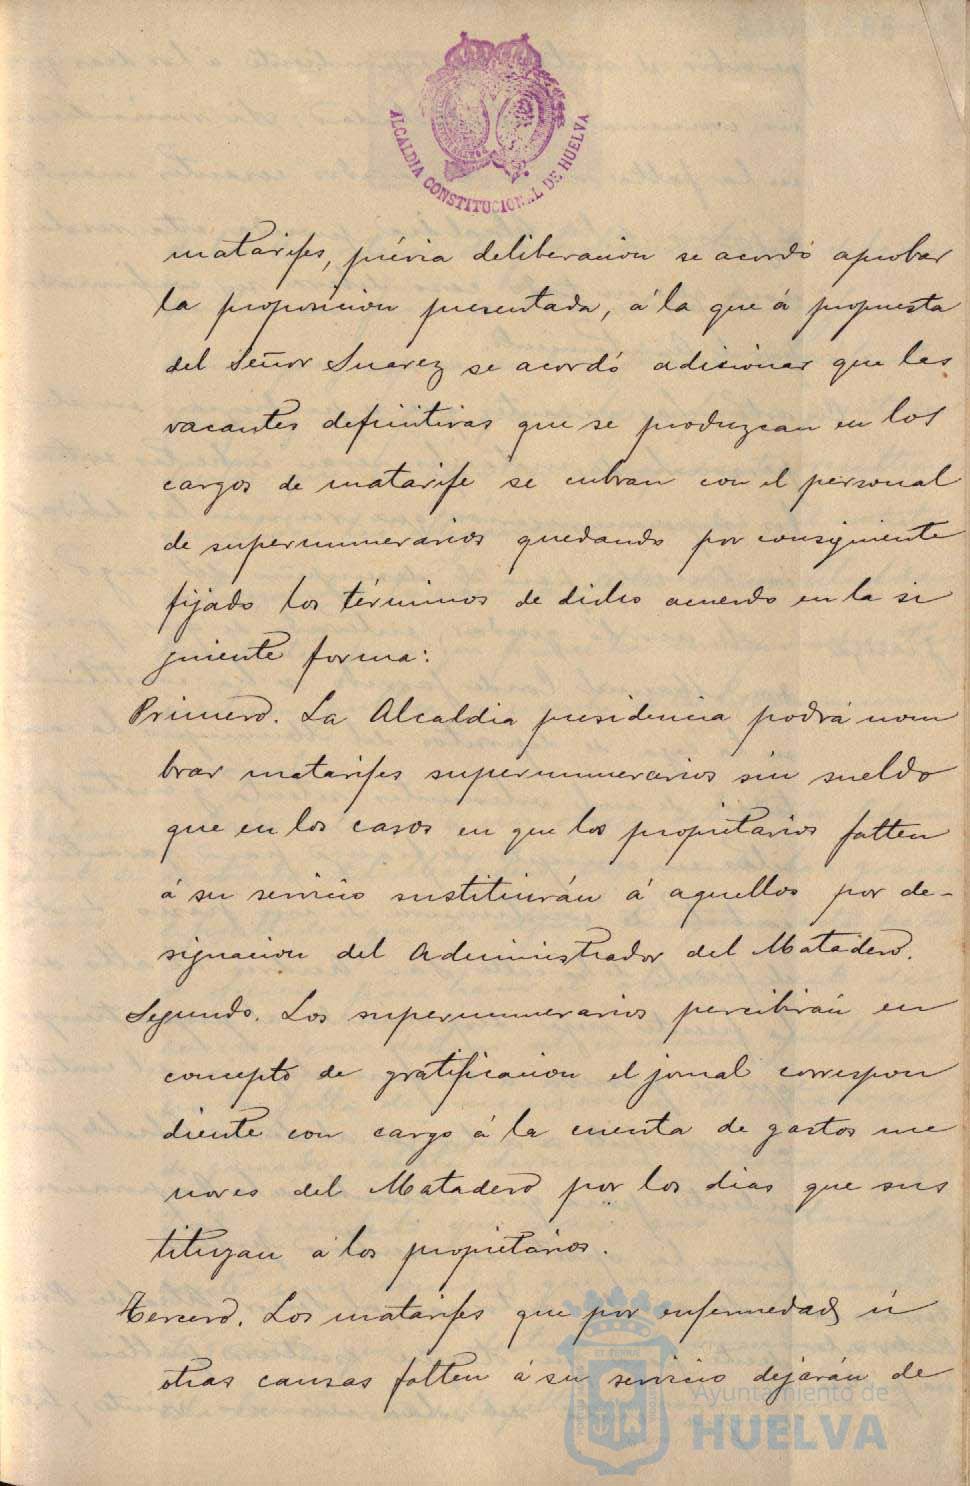 ALCALDIA CONSTITUCIONAL DE HUELVA
matarifes, prévia deliberacion se acordó aprobar
la proposicion presentada, á la que á propuesta
del Señor Suarez se acordó adicionar que las
vacantes definitivas que se produzcan en los
cargos de matarife se cubran con el personal
de supernumerarios quedando por consiguiente
fijado los términos de dicho acuerdo en la si
guiente forma:
Primero. La Alcaldia presidencia podrá nom
brar matarifes supernumerarios sin sueldo
que en los casos en que los propietarios falten
á su servicio sustituirán á aquellos por de-
signacion del Administrador del Matadero.
Segundo. Los supernumerarios percibirán en
concepto de gratificacion el jornal correspon
diente con cargo á la cuenta de gastos me
nores del Matadero por los dias que sus
tituyan á los propietarios.
Tercero. Los matarifes que por enfermedad ú
otras causas falten á su servicio dejarán de
Ayuntamiento de
HUELVA